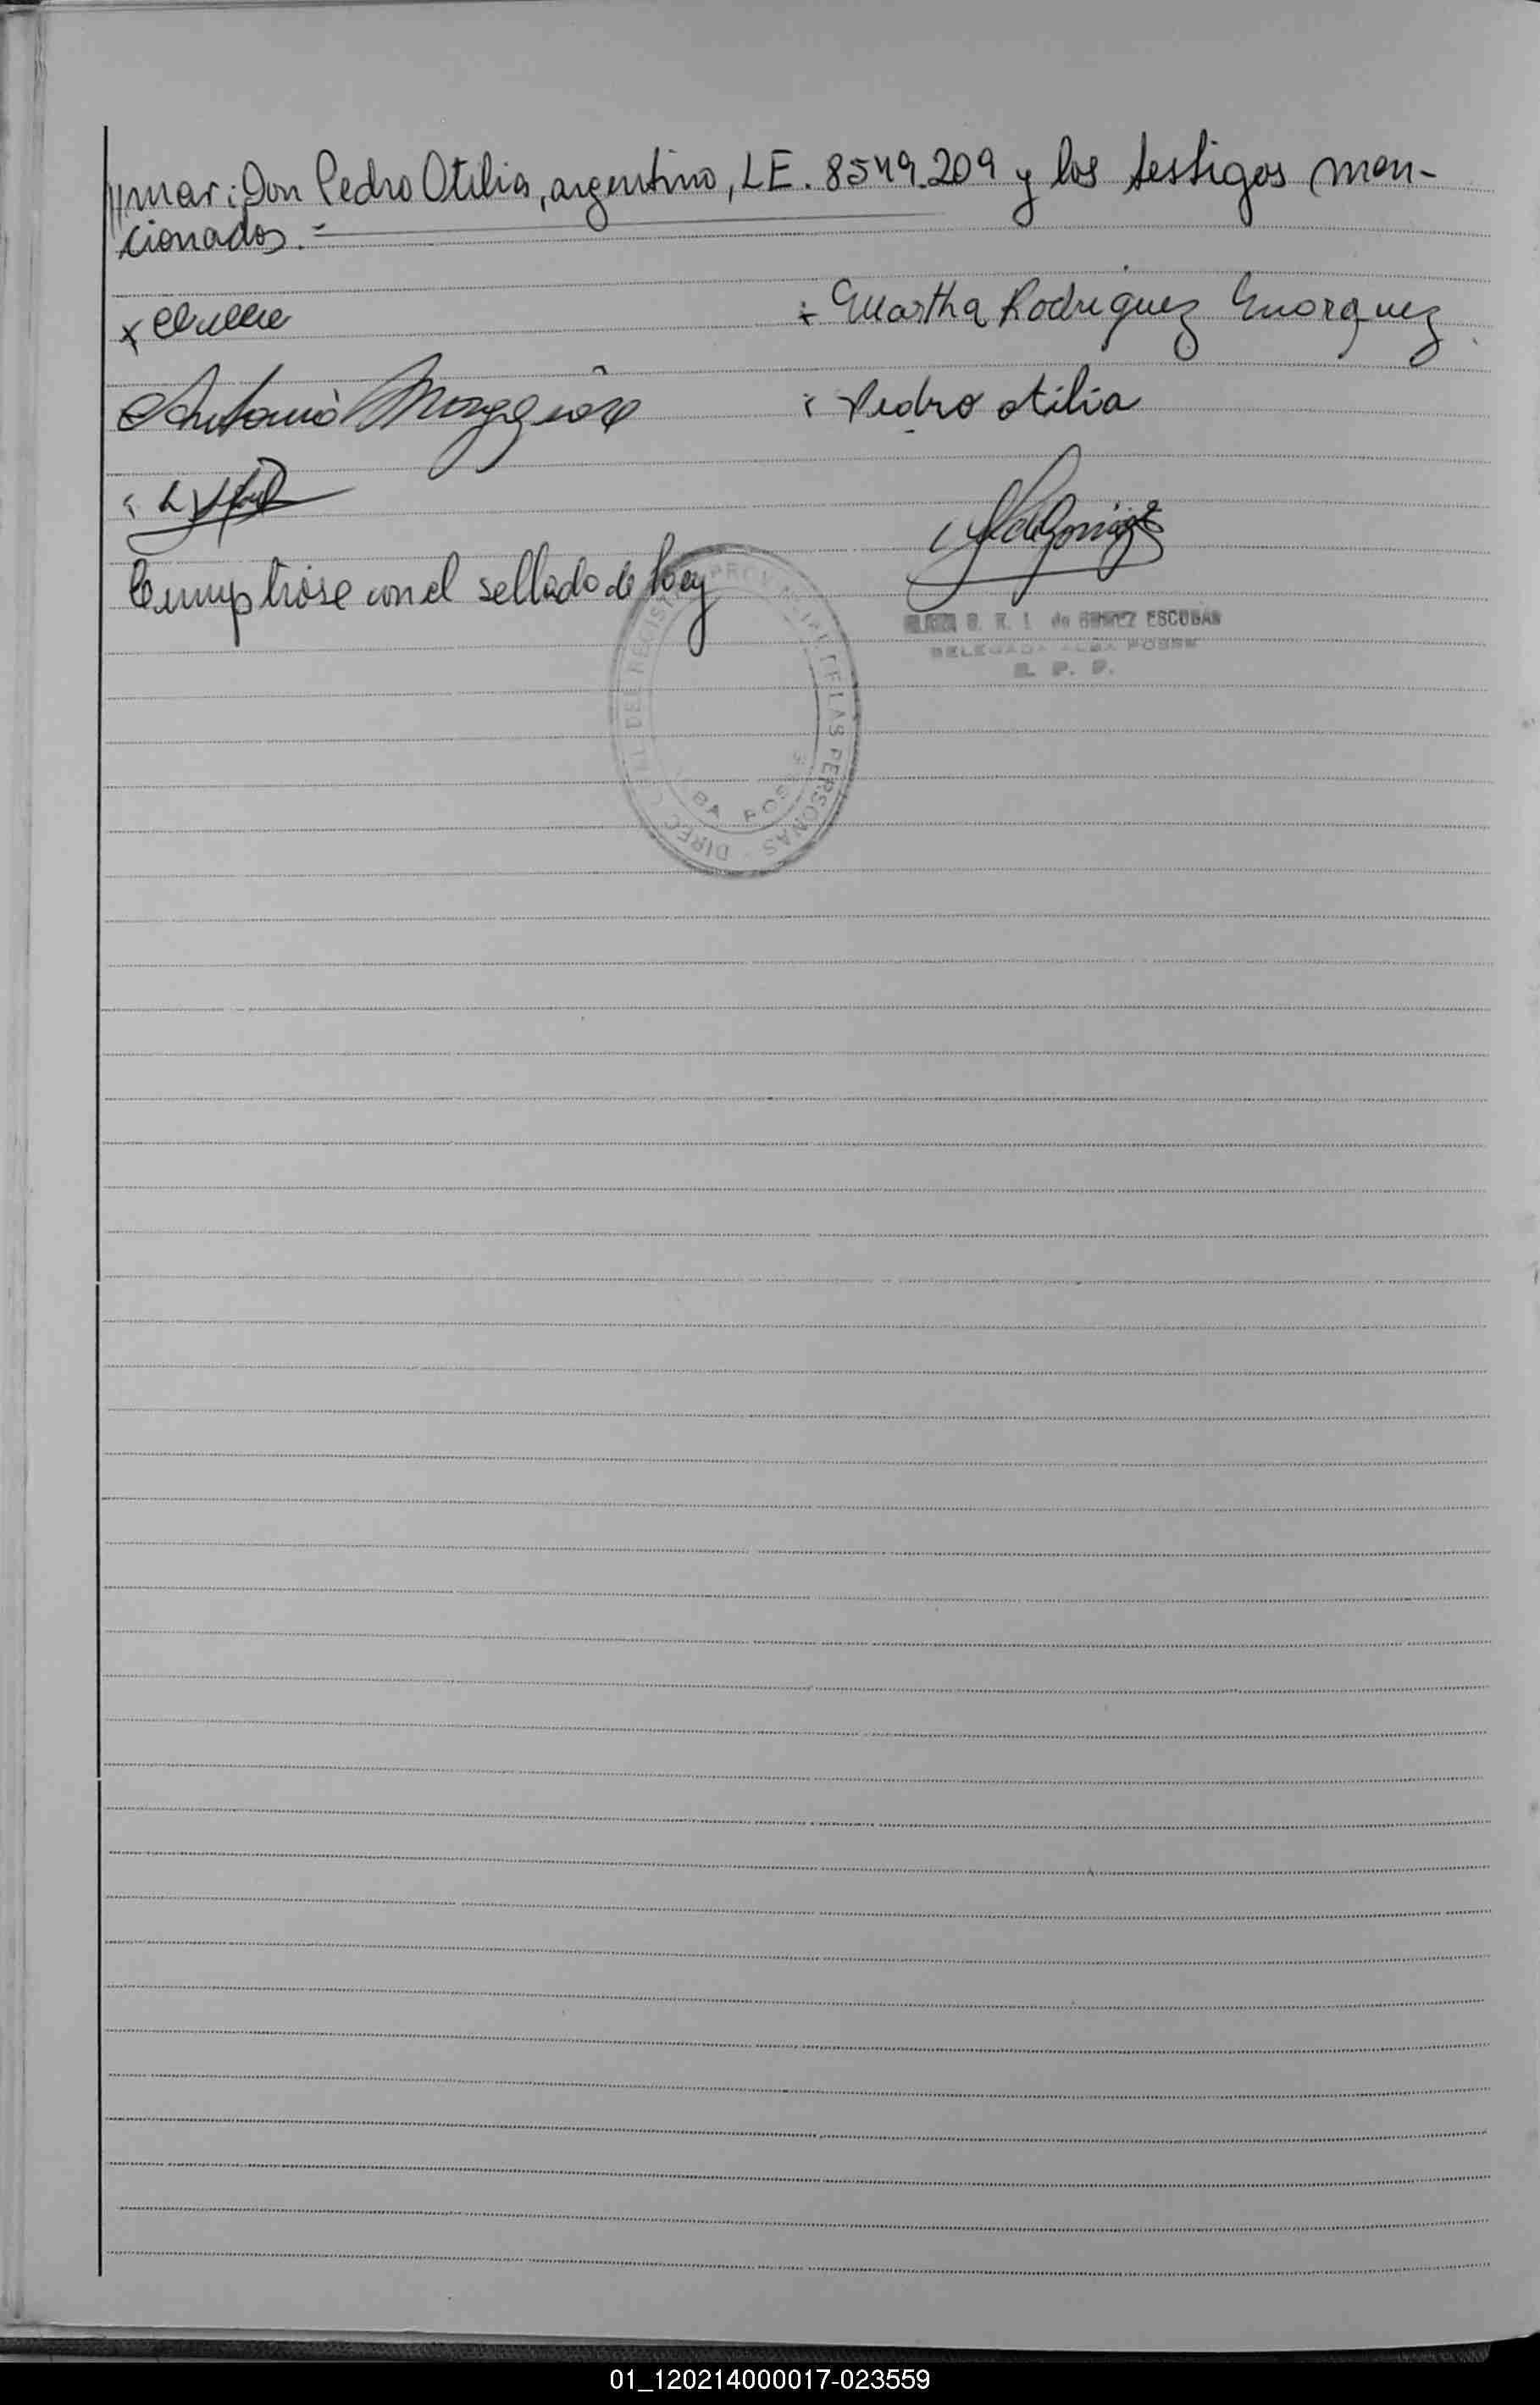 //mar: Don Pedro Otilia, argentino, L.E. 8549.209 y los testigos men-
cionados.=
x
: Martha Rodriguez Enorquez
Antonio
: Pedro otilia
Cumptrióse con el sellado de Ley
DE GOMEZ ESCOBAR
DELEGADA ALBA POSSE
R. P. P.
DIREC PROVINCIAL DE LAS PERSONAS
BA POSSE
01_120214000017-023559